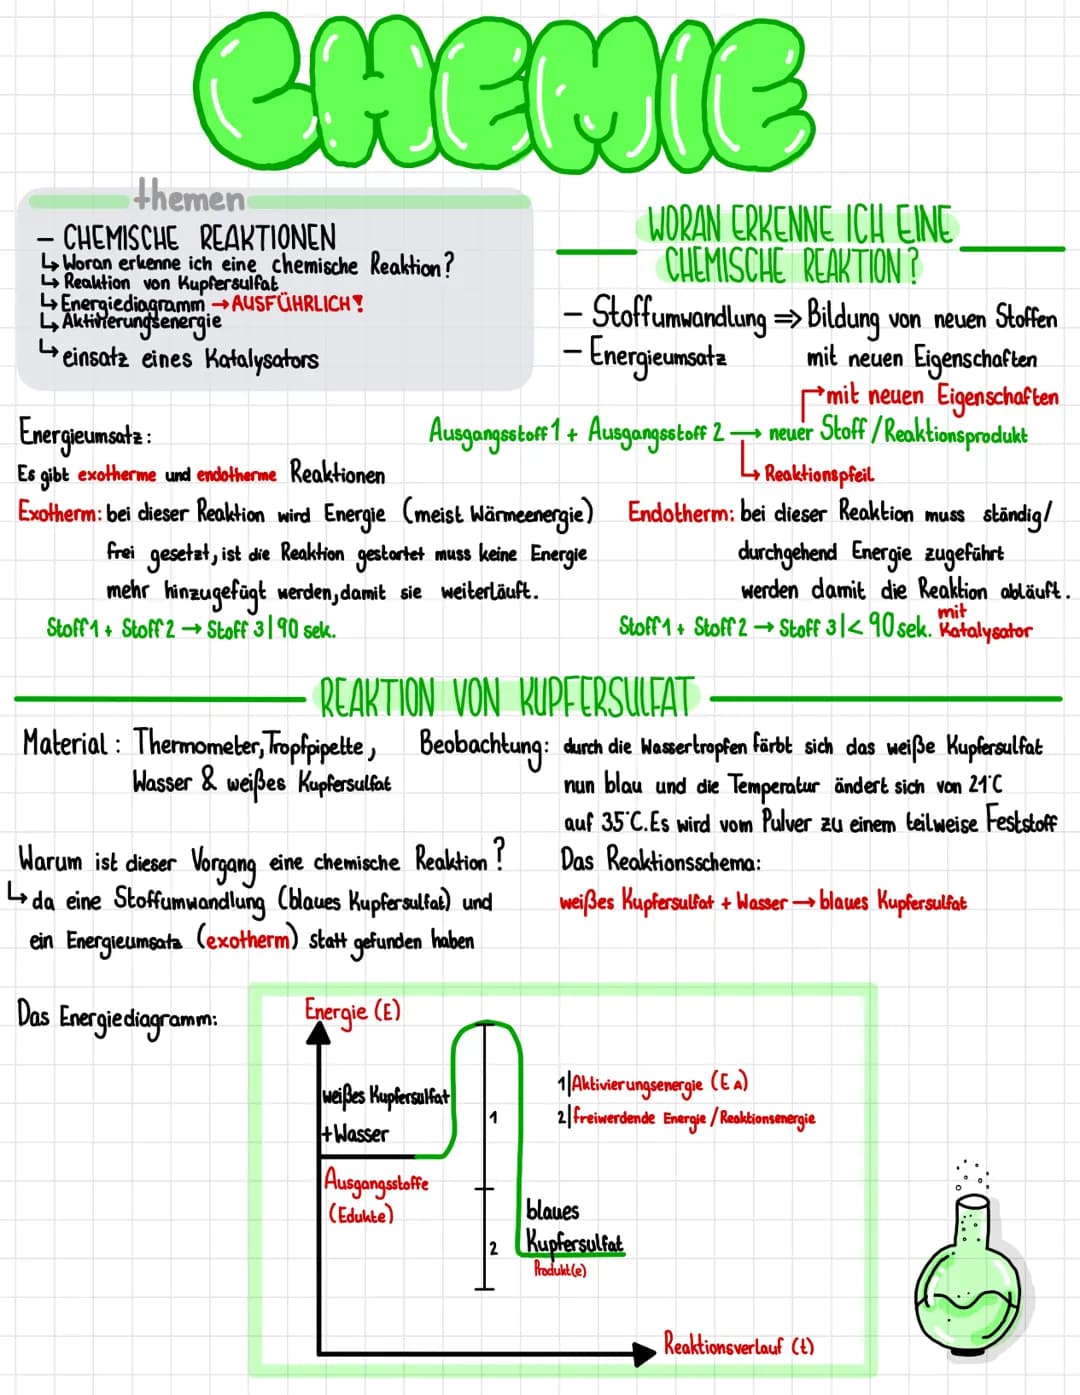 CHEMIE
themen
- CHEMISCHE REAKTIONEN
↳ Woran erkenne ich eine chemische Reaktion?
↳ Reaktion von Kupfersulfat
↳ Energiediagramm → AUSFÜHRLICH!
↳ Aktivierungsenergie
↳ einsatz eines Katalysators
WORAN ERKENNE ICH EINE
CHEMISCHE REAKTION?
- Stoffumwandlung ⇒ Bildung von neuen Stoffen
mit neuen Eigenschaften
- Energieumsatz
mit neuen Eigenschaften
Ausgangsstoff 1 + Ausgangsstoff 2 → neuer Stoff / Reaktionsprodukt
↳ Reaktionspfeil
Energieumsatz:
Es gibt exotherme und endotherme Reaktionen
Exotherm: bei dieser Reaktion wird Energie (meist Wärmeenergie)
frei gesetzt, ist die Reaktion gestartet muss keine Energie
mehr hinzugefügt werden, damit sie weiterläuft.
Stoff 1 + Stoff 2 → Stoff 3 | 90 sek.
Endotherm: bei dieser Reaktion muss ständig/
durchgehend Energie zugeführt
werden damit die Reaktion abläuft.
Stoff 1 + Stoff 2 → Stoff 3 | < 90 sek. mit Katalysator
REAKTION VON KUPFERSULFAT
Material: Thermometer, Tropfpipette,
Wasser & weißes Kupfersulfat
Beobachtung: durch die Wassertropfen färbt sich das weiße Kupfersulfat
nun blau und die Temperatur ändert sich von 21°C
auf 35°C. Es wird vom Pulver zu einem teilweise Feststoff
Warum ist dieser Vorgang eine chemische Reaktion?
↳ da eine Stoffumwandlung (blaues Kupfersulfat) und
ein Energieumsatz (exotherm) statt gefunden haben
Das Reaktionsschema:
weißes Kupfersulfat + Wasser → blaues Kupfersulfat
Das Energiediagramm:
Energie (E)
weißes Kupfersulfat
+ Wasser
Ausgangsstoffe
(Edukte)
1
2
blaues
Kupfersulfat
Produkt(e)
1| Aktivierungsenergie (EA)
2| freiwerdende Energie / Reaktionsenergie
Reaktionsverlauf (t)